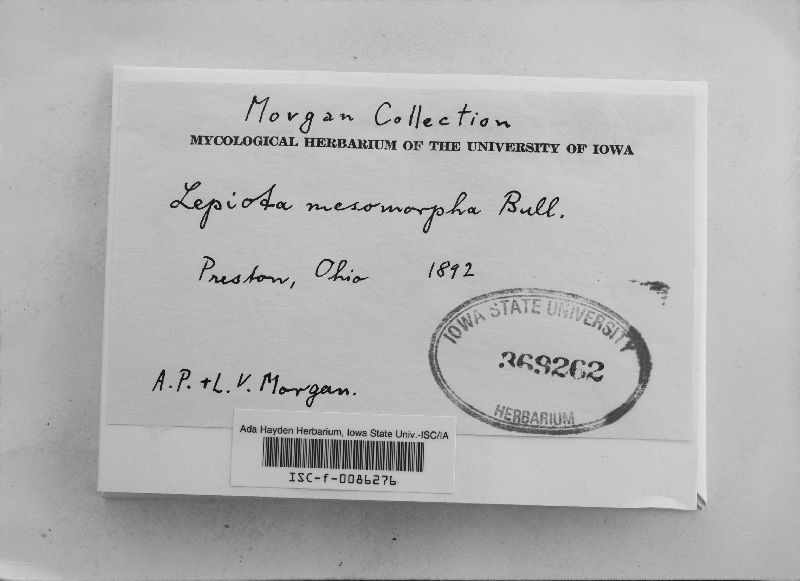 Morgan Collection
MYCOLOGICAL HERBARIUM OF THE UNIVERSITY OF IOWA
Lepiota mesomorpha Bull.
Preston, Ohio 1892
IOWA STATE UNIVERSITY
369262
HERBARIUM
A.P. + L.V. Morgan.
Ada Hayden Herbarium, Iowa State Univ.-ISC/IA
ISC-f-0086276